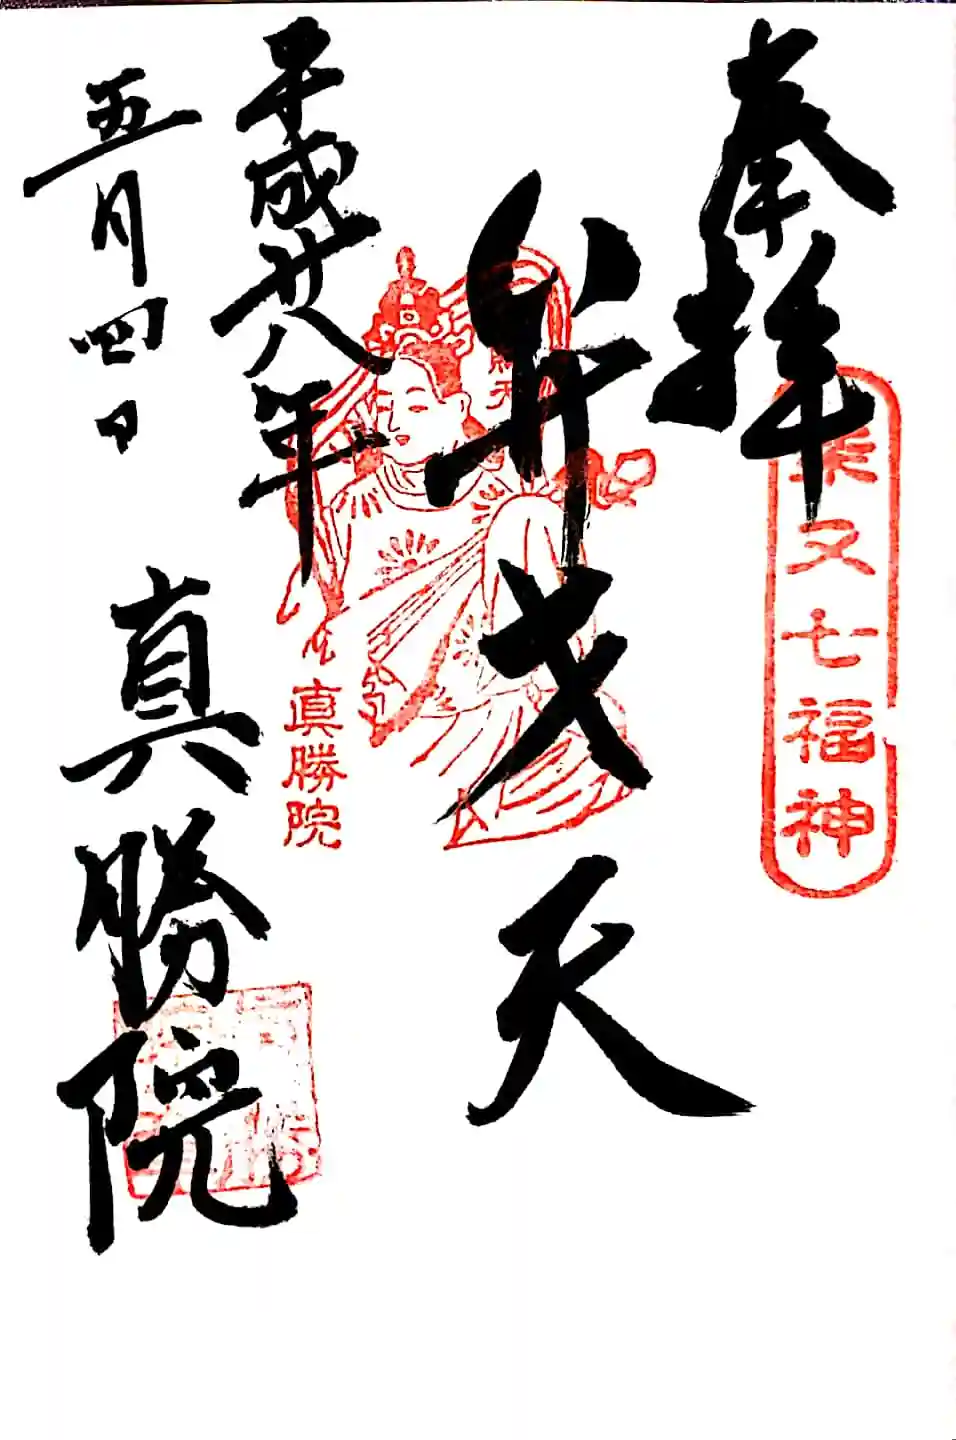 奉拝
柴又七福神
弁才天
真勝院
平成廿八年
五月四日
真勝院